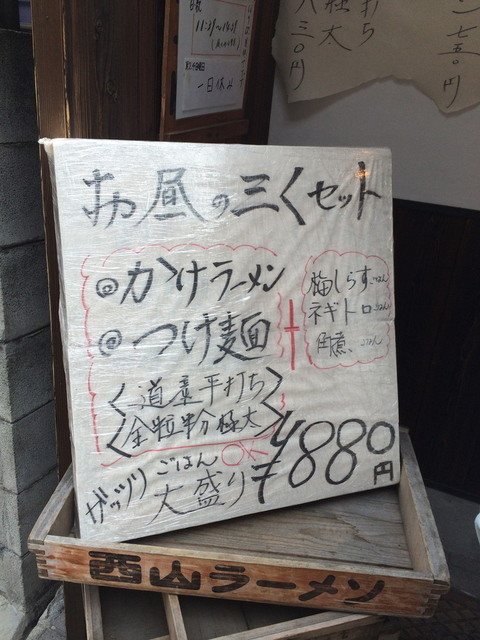 昼
11:31〜14:31
一日休み
打ち
極太
八三〇円
七五〇円
お昼の三くセット
◎かけラーメン
◎つけ麺
梅しらすごはん
ネギトロごはん
角煮ごはん
+
<道産平打ち>
<全粒粉極太>
ガッツリごはん
大盛りOK
¥880円
西山ラーメン